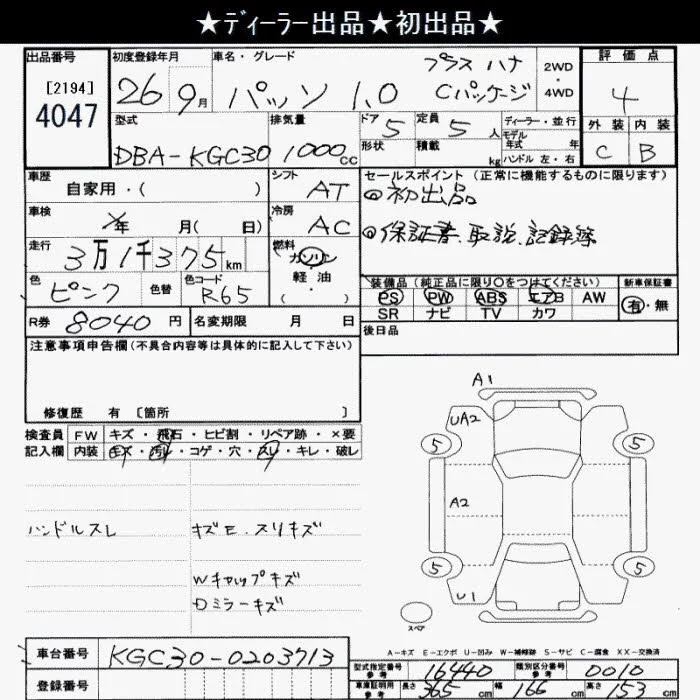 ★ディーラー出品★初出品★
出品番号
[2194]
4047
初度登録年月
26 9月
車名・グレード
パッソ 1.0
プラス ハナ
Cパッケージ
2WD
・
4WD
評価点
4
外装 内装
C B
型式
DBA-KGC30
排気量
1000cc
ドア 5
形状
定員 5人
積載 kg
ディーラー・並行
モデル年式 年
ハンドル 左・右
車歴
自家用・( )
シフト
AT
セールスポイント (正常に機能するものに限ります)
◎初出品
◎保証書、取説、記録簿
車検
年 月( 日)
冷房
AC
走行
3万1千375km
燃料
ガソリン
軽・油
・( )
色
ピンク
色替
色コード
R65
装備品 (純正品に限り○をつけてください)
PS PW ABS エアB AW
SR ナビ TV カワ
新車保証書
有・無
R券 8040 円
名変期限 月 日
後日品
注意事項申告欄 (不具合内容等は具体的に記入して下さい)
修復歴 有 [箇所 ]
検査員
記入欄
FW キズ・飛石・ヒビ割・リペア跡・×要
内装 キズ・汚レ・コゲ・穴・スレ・キレ・破レ
ハンドルスレ
キズE.スリキズ
Wキャップキズ
Dミラーキズ
A1
UA2
5
5
A2
5
5
U1
スペア
A-キズ E-エクボ U-凹み W-補修跡 S-サビ C-腐食 XX-交換済
車台番号 KGC30-0203713
登録番号
型式指定番号
参考
16440
類別区分番号
参考
0010
車庫証明用
参考
長さ 365 cm
幅 166 cm
高さ 153 cm